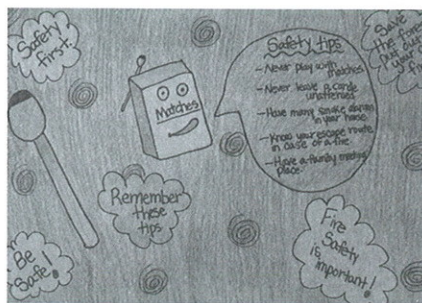 Safety
first!
Matches
Safety tips
- Never play with
matches
- Never leave a candle
unattended
- Have many smoke alarms
in your house
- Know your escape route
in case of a fire
- Have a family meeting
place.
Save
the forest
put out
your
Remember
these
tips
Be
Safe!
Fire
Safety
is
important!